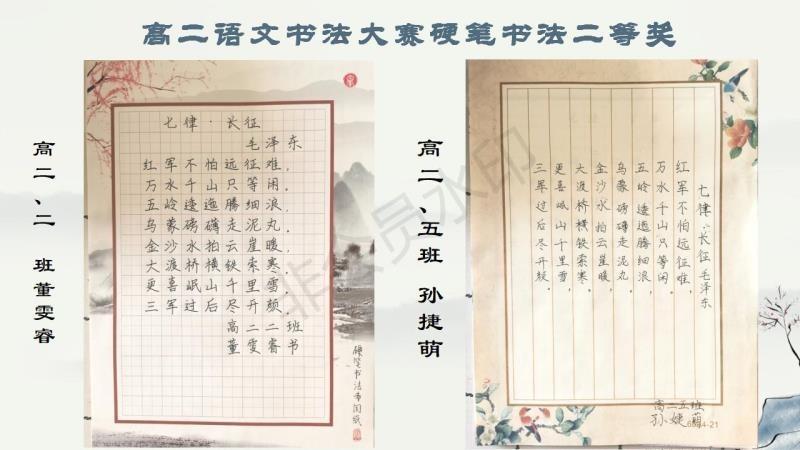 高二语文书法大赛硬笔书法二等奖
高二、二 班董雯睿
七律·长征
毛泽东
红军不怕远征难，
万水千山只等闲。
五岭逶迤腾细浪，
乌蒙磅礴走泥丸。
金沙水拍云崖暖，
大渡桥横铁索寒。
更喜岷山千里雪，
三军过后尽开颜。
高二二班
董雯睿书
硬笔书法专用纸
高二、五班 孙捷萌
七律·长征 毛泽东
红军不怕远征难，
万水千山只等闲。
五岭逶迤腾细浪，
乌蒙磅礴走泥丸。
金沙水拍云崖暖，
大渡桥横铁索寒。
更喜岷山千里雪，
三军过后尽开颜。
高二五班
孙婕萌
非会员水印